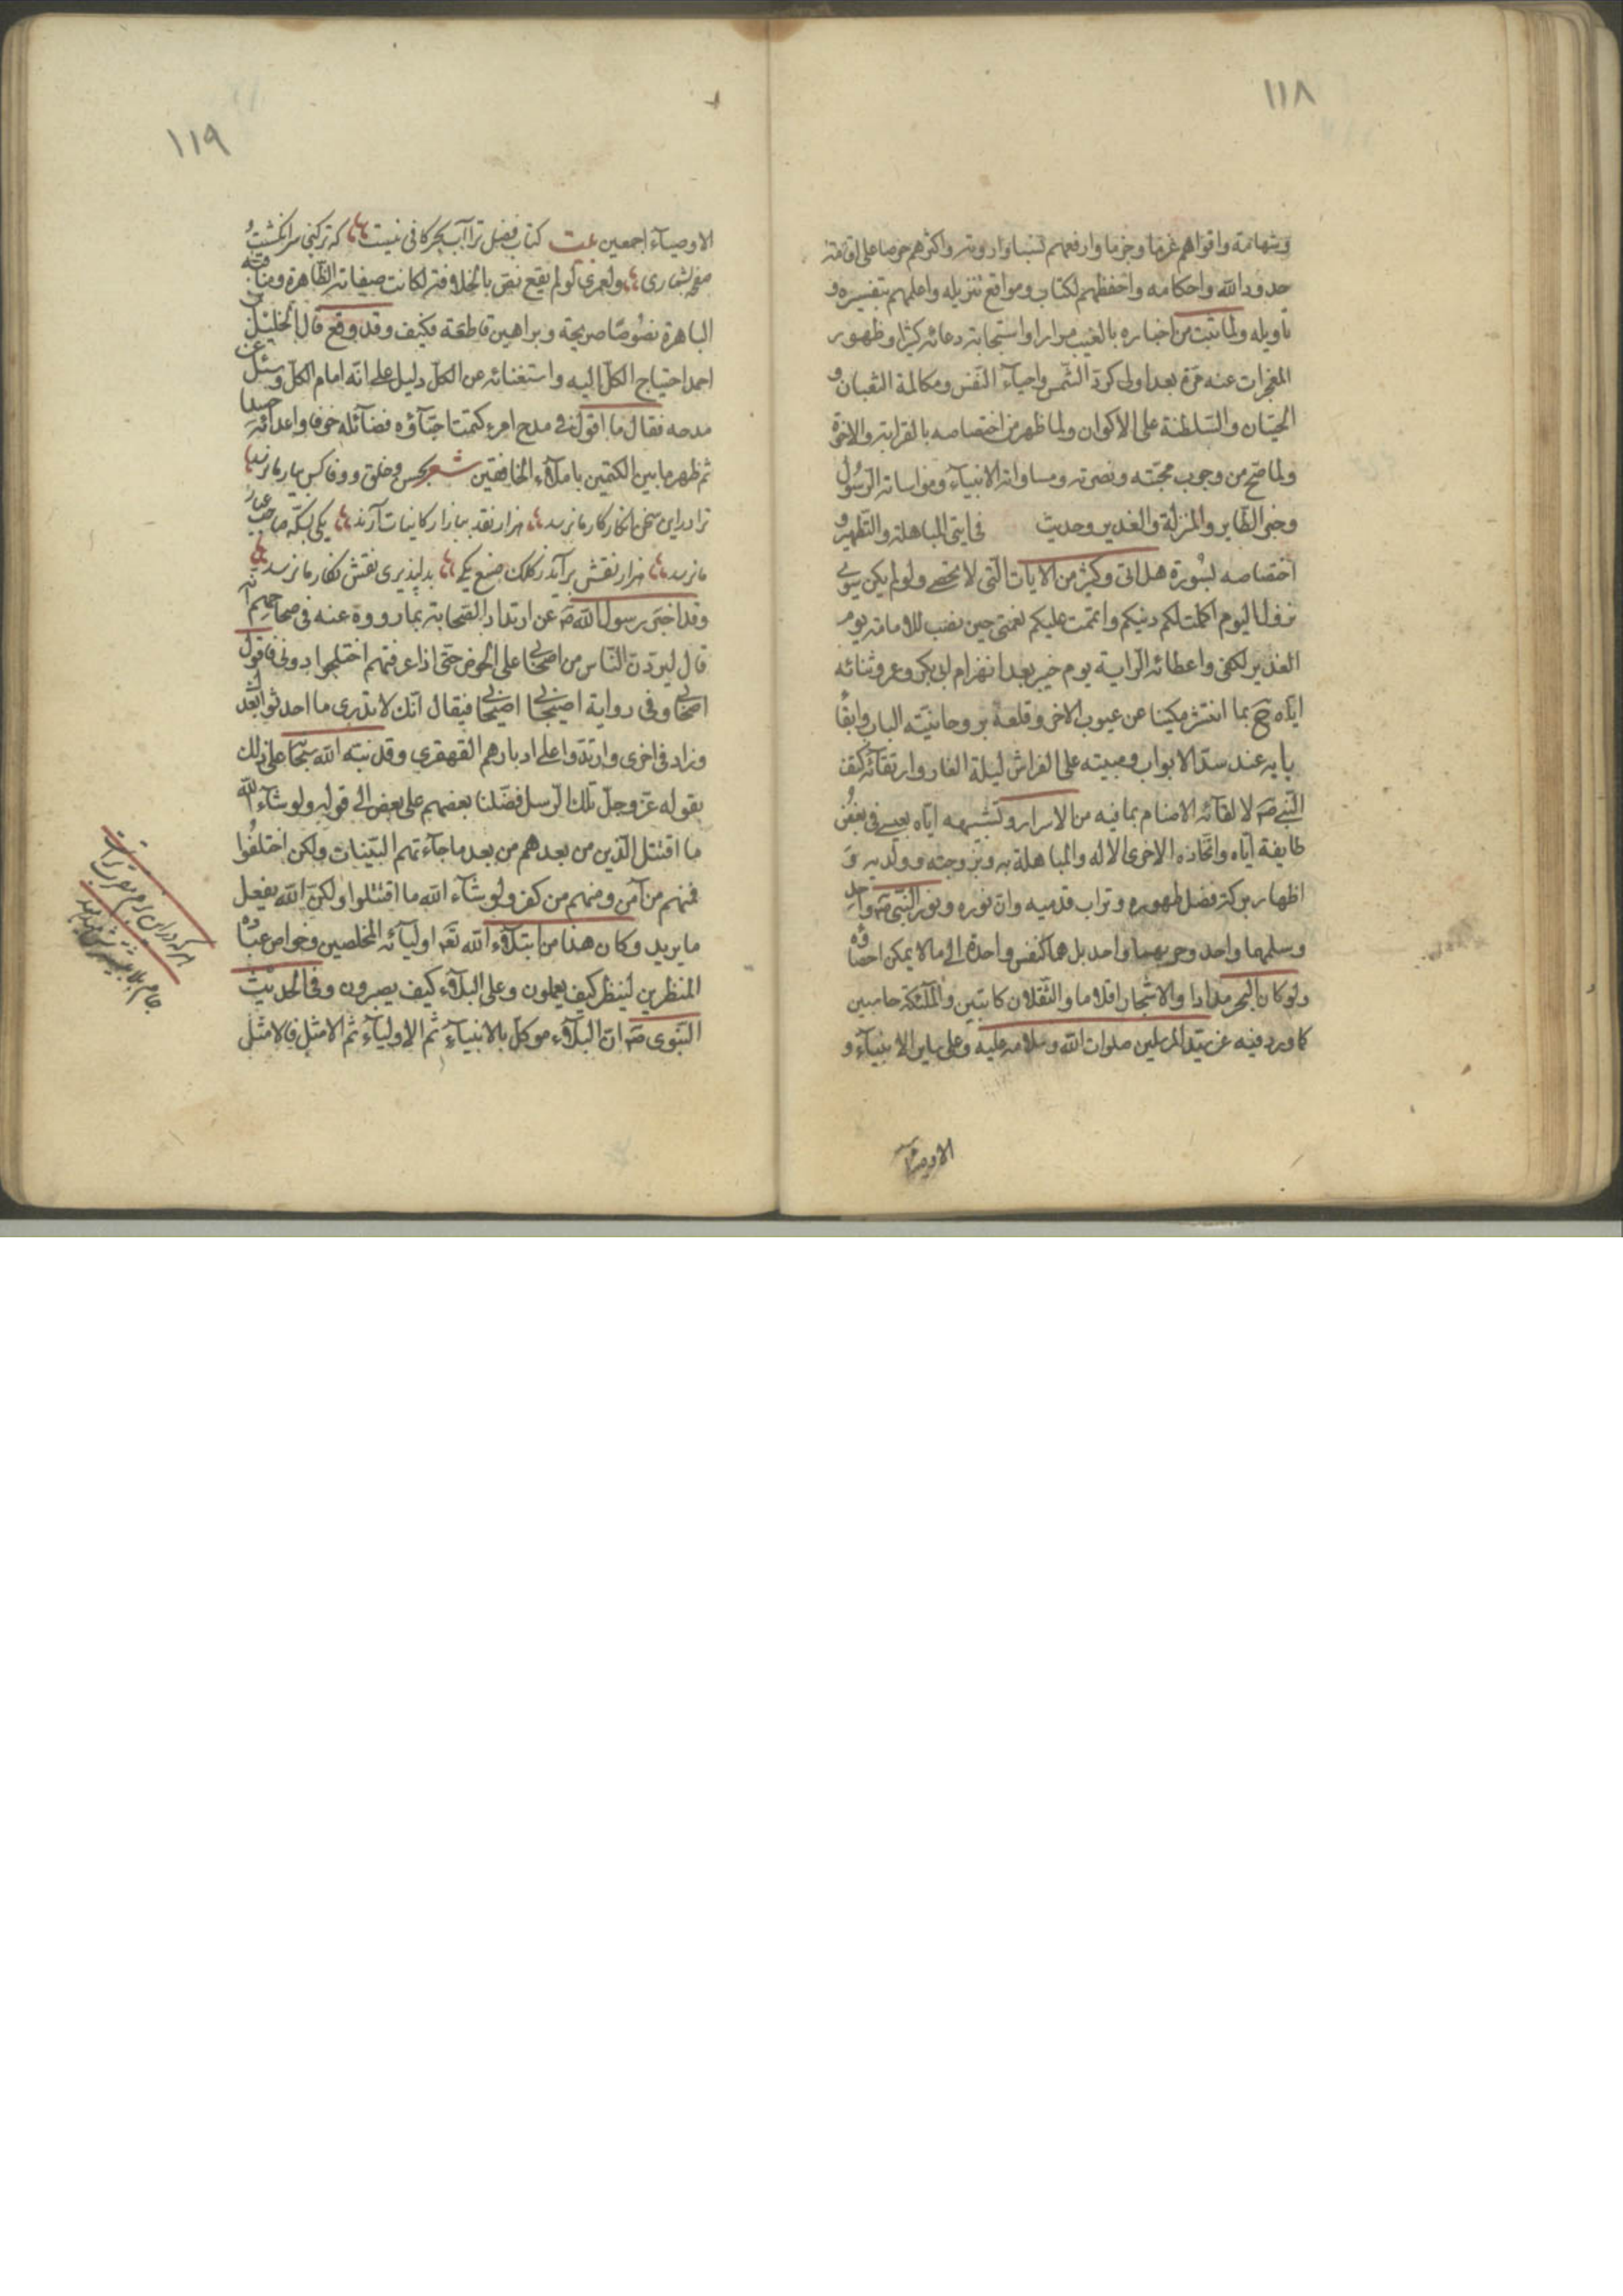 ١١٨
وشهامة واقواهم عزما وحزما وارفعهم نسبا وارومة واكثرهم حرصا على اقامة
حدود الله واحكامه واحفظهم لكتاب ومواقع تنزيله واعلمهم بتفسيره و
تأويله ولما ثبت من اخباره بالغيب مرارا واستجابة دعائه كثيرا وظهور
المعجزات عنه مرة بعد اولى كردّ الشمس واحياء النفس ومكالمة الثعبان و
الحيتان والسلطنة على الاكوان ولما ظهر من اختصاصه بالقرابة والاخوة
ولما صح من وجوب محبته ونصرته ومساواته الانبياء ومواساته الرسول
وخبر الطاير والمنزلة والغدير وحديث في ايتي المباهلة والتطهير و
اختصاصه بسورة هل اتى وكثير من الايات التي لا تحصى ولو لم يكن سوى
نزول اليوم اكملت لكم دينكم واتممت عليكم نعمتي حين نصب للامامة يوم
الغدير لكفى واعطائه الراية يوم خيبر بعد انهزام ابى بكر وعمر وثنائه
اياه ح بما انتثر مكينا عن عيوب الاخر وقلعة بروحانيته الباب وابقا
بابه عند سد الابواب ومبيته على الفراش ليلة الغار وارتقائه كتف
النبي ص لالقائه الاصنام بما فيه من الاسرار وتشبيهه اياه بعيسى في بغض
طايفة اياه واتخاذه الاخرى الاله والمباهلة به وبزوجته وولديه و
اظهار بركة فضل طهوره وتراب قدميه وان نوره ونور النبي ص واحد
وسلمهما واحد وحربهما واحد بل هما كنفس واحدة الى ما لا يمكن احصاؤه
ولو كان البحر مدادا والاشجار اقلاما والثقلان كاتبين والملئكة حاسبين
كما ورد فيه عن سيد المرسلين صلوات الله وسلامه عليه وعلى ساير الانبياء و
الاوصياء
١١٩
الاوصياء اجمعين بيت كتاب فضل ترا آب بحر كافى نيست كه تر كنى سر انكشت و
صفحه بشمارى ولعمري لو لم يقع نص بالخلافة لكانت صفاته الظاهرة ومناقبه
الباهرة نصوصا صريحة وبراهين قاطعة فكيف وقد وقع قال الخليل بن
احمد احتياج الكل اليه واستغنائه عن الكل دليل على انه امام الكل وسئل عن
مدحه فقال ما اقول في مدح امرء كتمت احباؤه فضائله خوفا واعدائه حسدا
ثم ظهر ما بين الكتمين ما ملاء الخافقين شعر بحسن وخلق ووفا كس بيار ما نرسد
ترا در اين سخن انكار كار ما نرسد هزار نقد ببازار كاينات آرند يكى بسكه صاحب عيار
ما نرسد هزار نقش بر آيد ز كلك صنع يكى بدلپذيرى نقش نكار ما نرسد
وقد اخبر رسول الله ص عن ارتداد الصحابة بما رووه عنه في صحاحهم انه
قال ليردن الناس من اصحابي على الحوض حتى اذا عرفتهم اختلجوا دونى فاقول
اصحابي وفى رواية اصيحابي اصيحابي فيقال انك لا تدري ما احدثوا بعدك
وزاد فى اخرى وارتدوا على ادبارهم القهقرى وقد نبه الله سبحانه على ذلك
بقوله عز وجل تلك الرسل فضلنا بعضهم على بعض الى قوله ولو شاء الله
ما اقتتل الذين من بعدهم من بعد ما جاءتهم البينات ولكن اختلفوا
فمنهم من آمن ومنهم من كفر ولو شاء الله ما اقتتلوا ولكن الله يفعل
ما يريد وكان هذا من ابتلاء الله تعه اوليائه المخلصين وخواص عباده
المنظرين لينظر كيف يعملون وعلى البلاء كيف يصبرون وفى الحديث
النبوى ص ان البلاء موكل بالانبياء ثم الاولياء ثم الامثل فالامثل
هر كه در اين بزم مقرب تر است
جام بلا بيشترش ميدهند